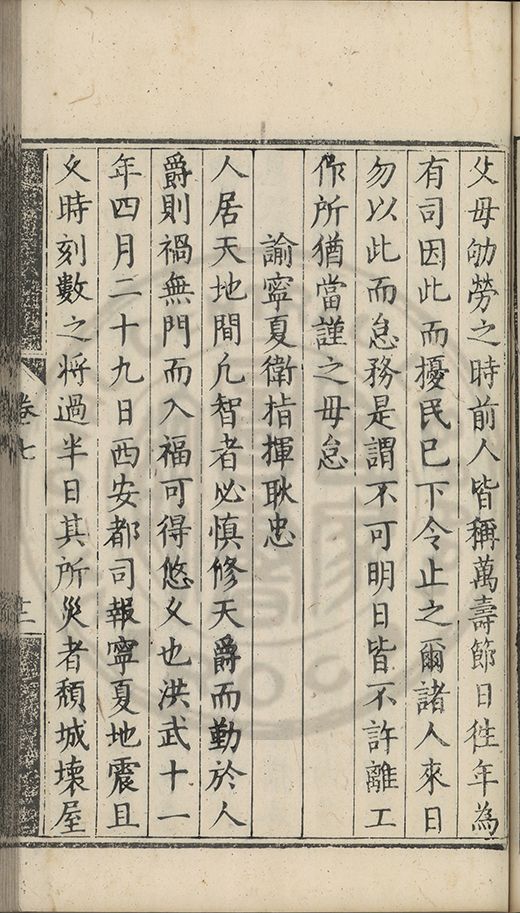 父母劬勞之時前人皆稱萬壽節日徃年為
有司因此而擾民已下令止之爾諸人來日
勿以此而怠務是謂不可明日皆不許離工
作所猶當謹之毋怠
諭寧夏衛指揮耿忠
人居天地間凢智者必慎修天爵而勤於人
爵則禍無門而入福可得悠乆也洪武十一
年四月二十九日西安都司報寧夏地震且
乆時刻數之将過半日其所災者頽城壊屋
卷七